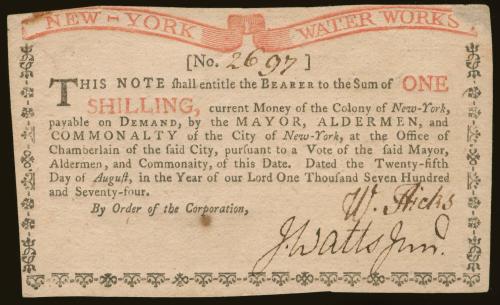 NEW-YORK WATER WORKS
[No. 2697]
THIS NOTE ſhall entitle the BEARER to the Sum of ONE
SHILLING, current Money of the Colony of New-York,
payable on DEMAND, by the MAYOR, ALDERMEN, and
COMMONALTY of the City of New-York, at the Office of
Chamberlain of the ſaid City, purſuant to a Vote of the ſaid Mayor,
Aldermen, and Commonalty, of this Date. Dated the Twenty-fifth
Day of Auguſt, in the Year of our Lord One Thouſand Seven Hundred
and Seventy-four.
By Order of the Corporation,
W. Hicks
J. Watts Junr.